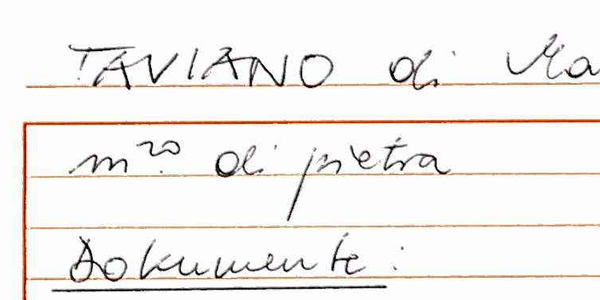 TAVIANO di Ma
m^ro di pietra
Dokumente: